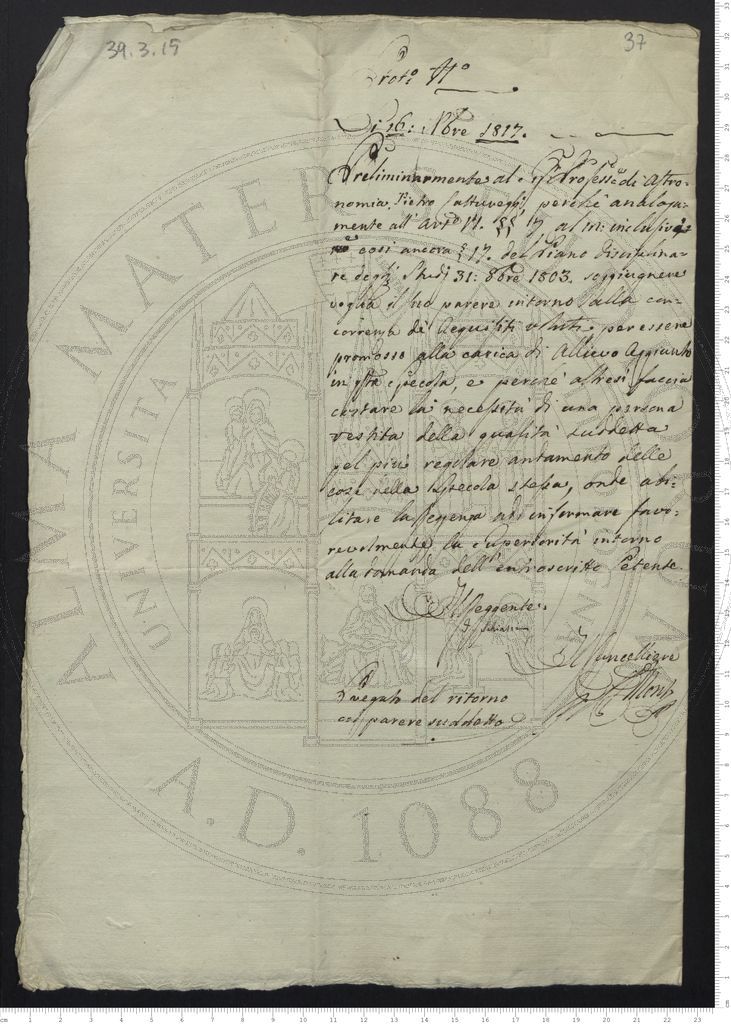 39.3.15
37
Prot.° N.°
Di 26: Nbre 1817.
Preliminarmente al Sig.r Professe di Astro-
nomia Pietro Caturegli perchè analoga-
mente all' Art.° 17. §§ al inclusive
così ancora § 17. del Piano disciplina-
re degli Studi 31: 8bre 1803. soggiugnere
voglia il suo parere intorno alla con-
correnza de' requisiti voluti per essere
promosso alla carica di Allievo Aggiunto
in q.sta Specola, e perchè altresì faccia
costare la necessità di una persona
vestita della qualità suddetta
pel più regolare andamento delle
cose della Specola stessa, onde abi-
litare la Reggenza ad informare favo-
revolmente la Superiorità intorno
alla domanda dell' introscritto Petente
Il Reggente
Schiassi
Il Cancelliere
Pregato del ritorno
col parere suddetto
ALMA MATER
UNIVERSITA
A.D. 1088